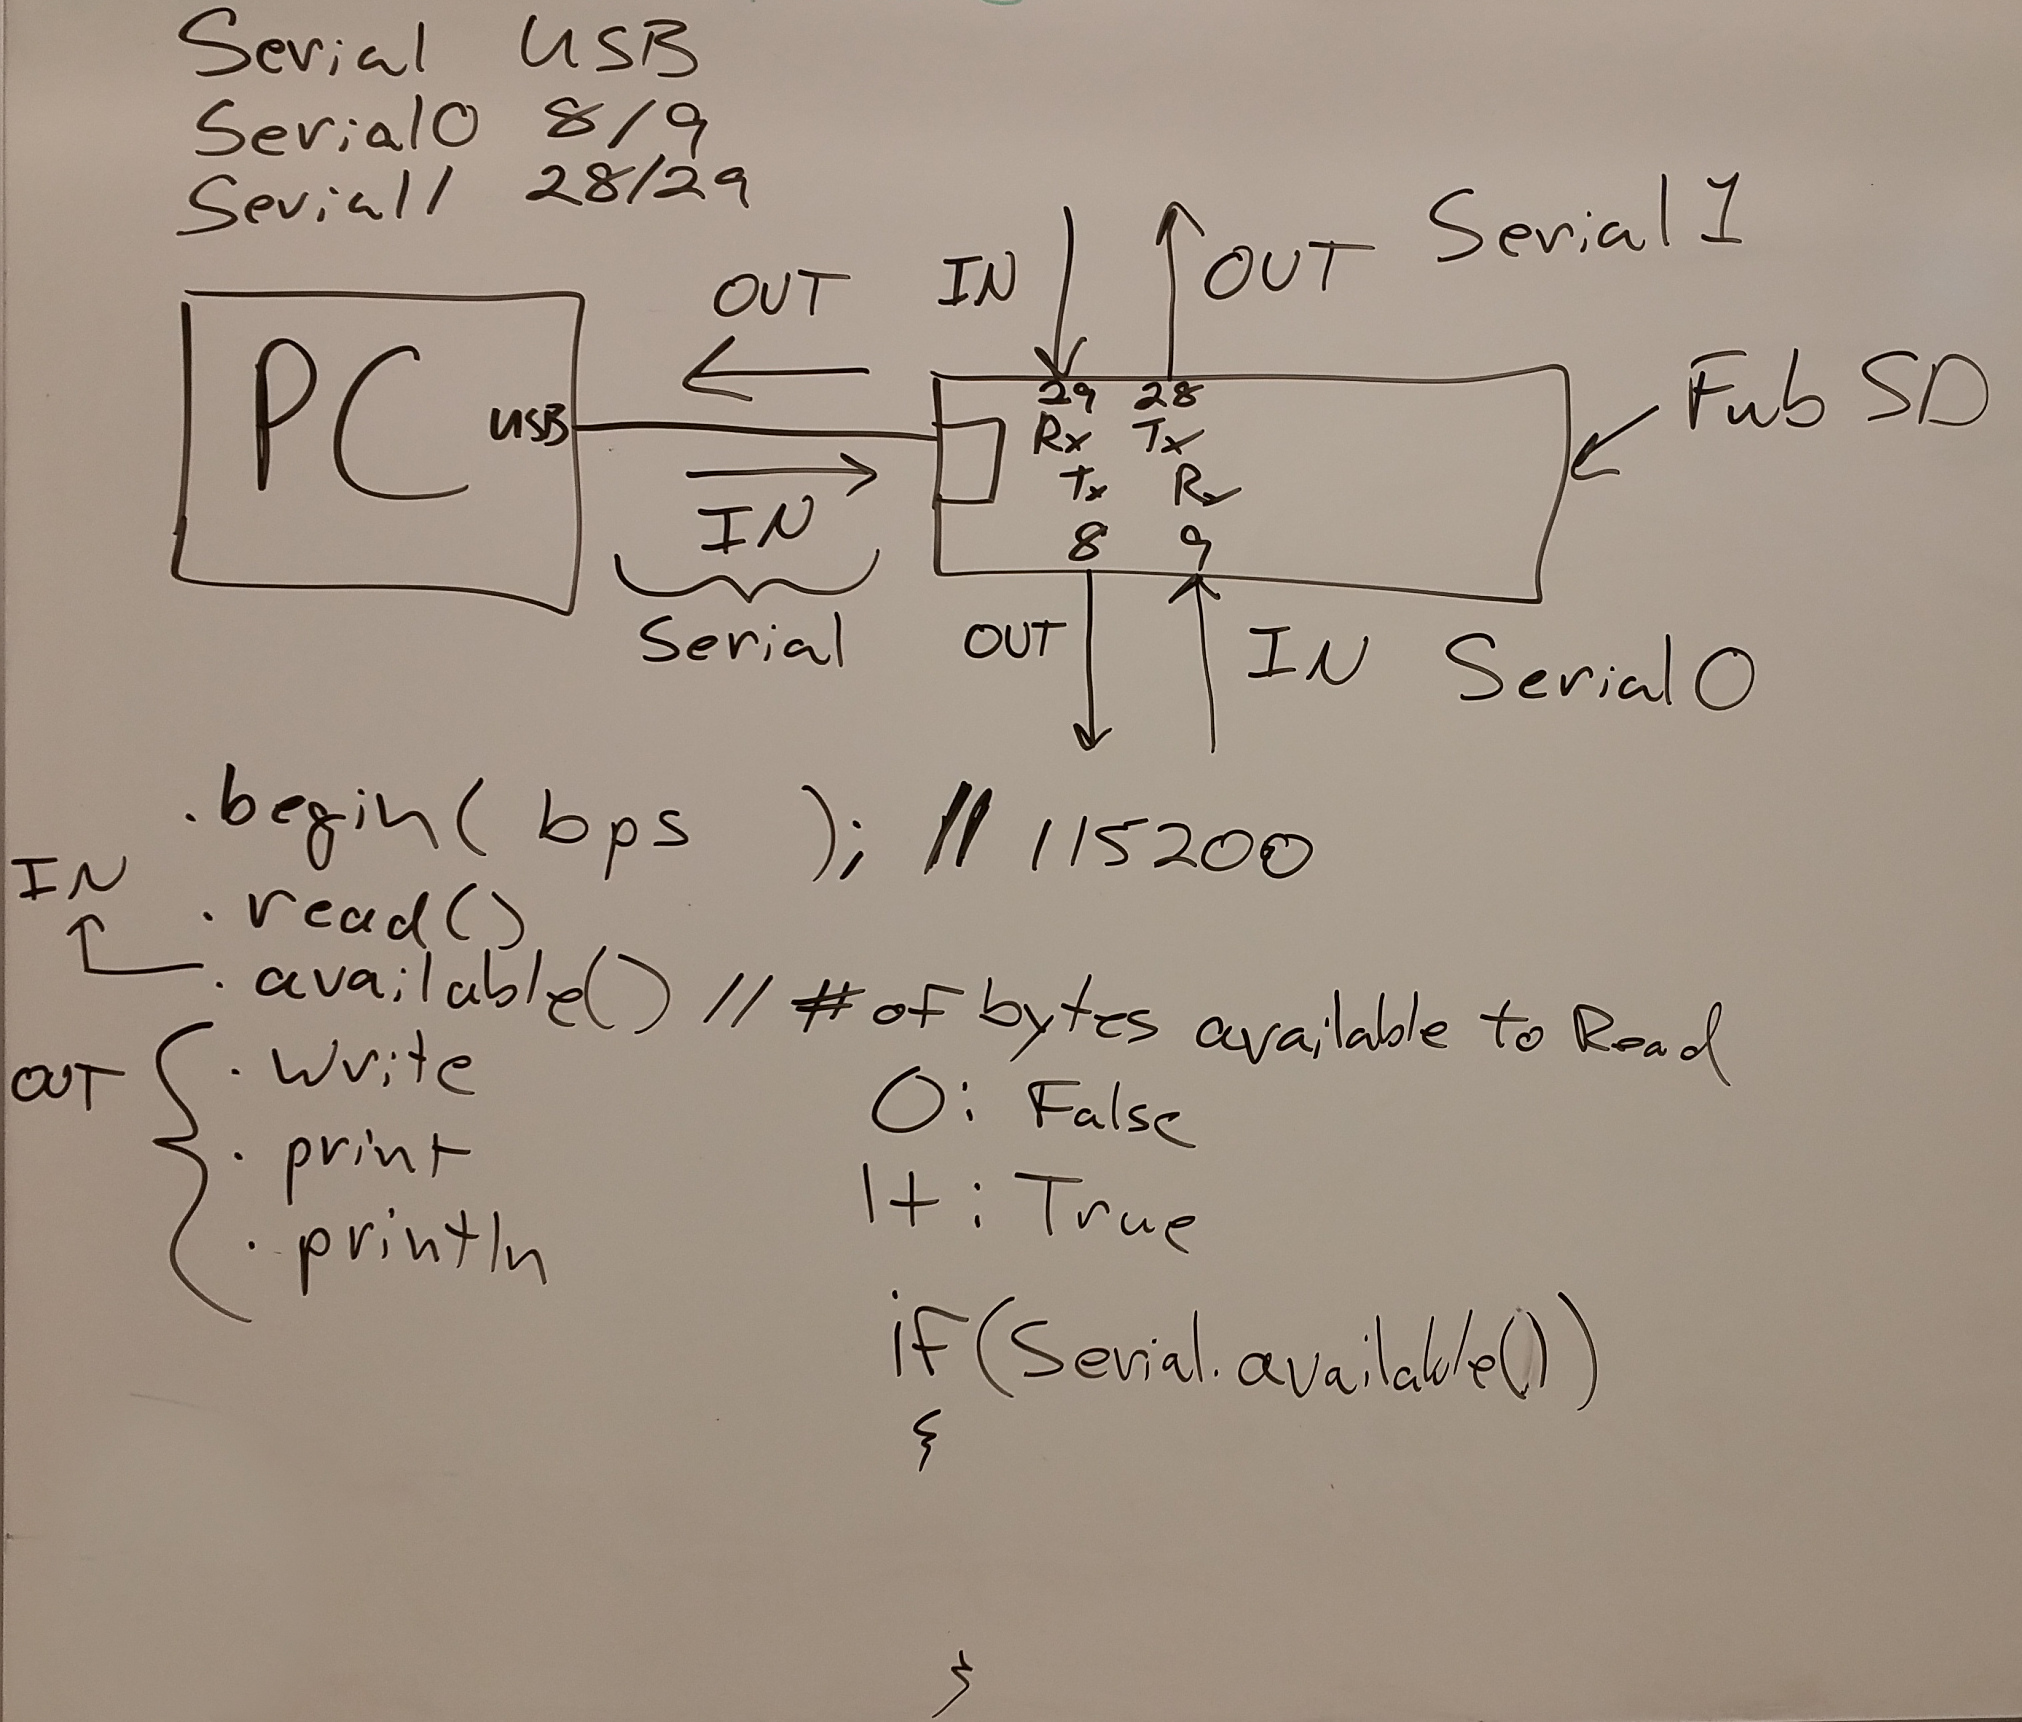 Serial USB
Serial0 8/9
Serial1 28/29
Serial 1
OUT IN OUT
PC USB
29 28
Rx Tx
Tx Rx
8 9
Fub SD
IN
Serial
OUT IN Serial 0
.begin( bps ); // 115200
IN
.read()
.available() // # of bytes available to Read
OUT { .write
.print
.println
0: False
1+: True
if(Serial.available())
{
}